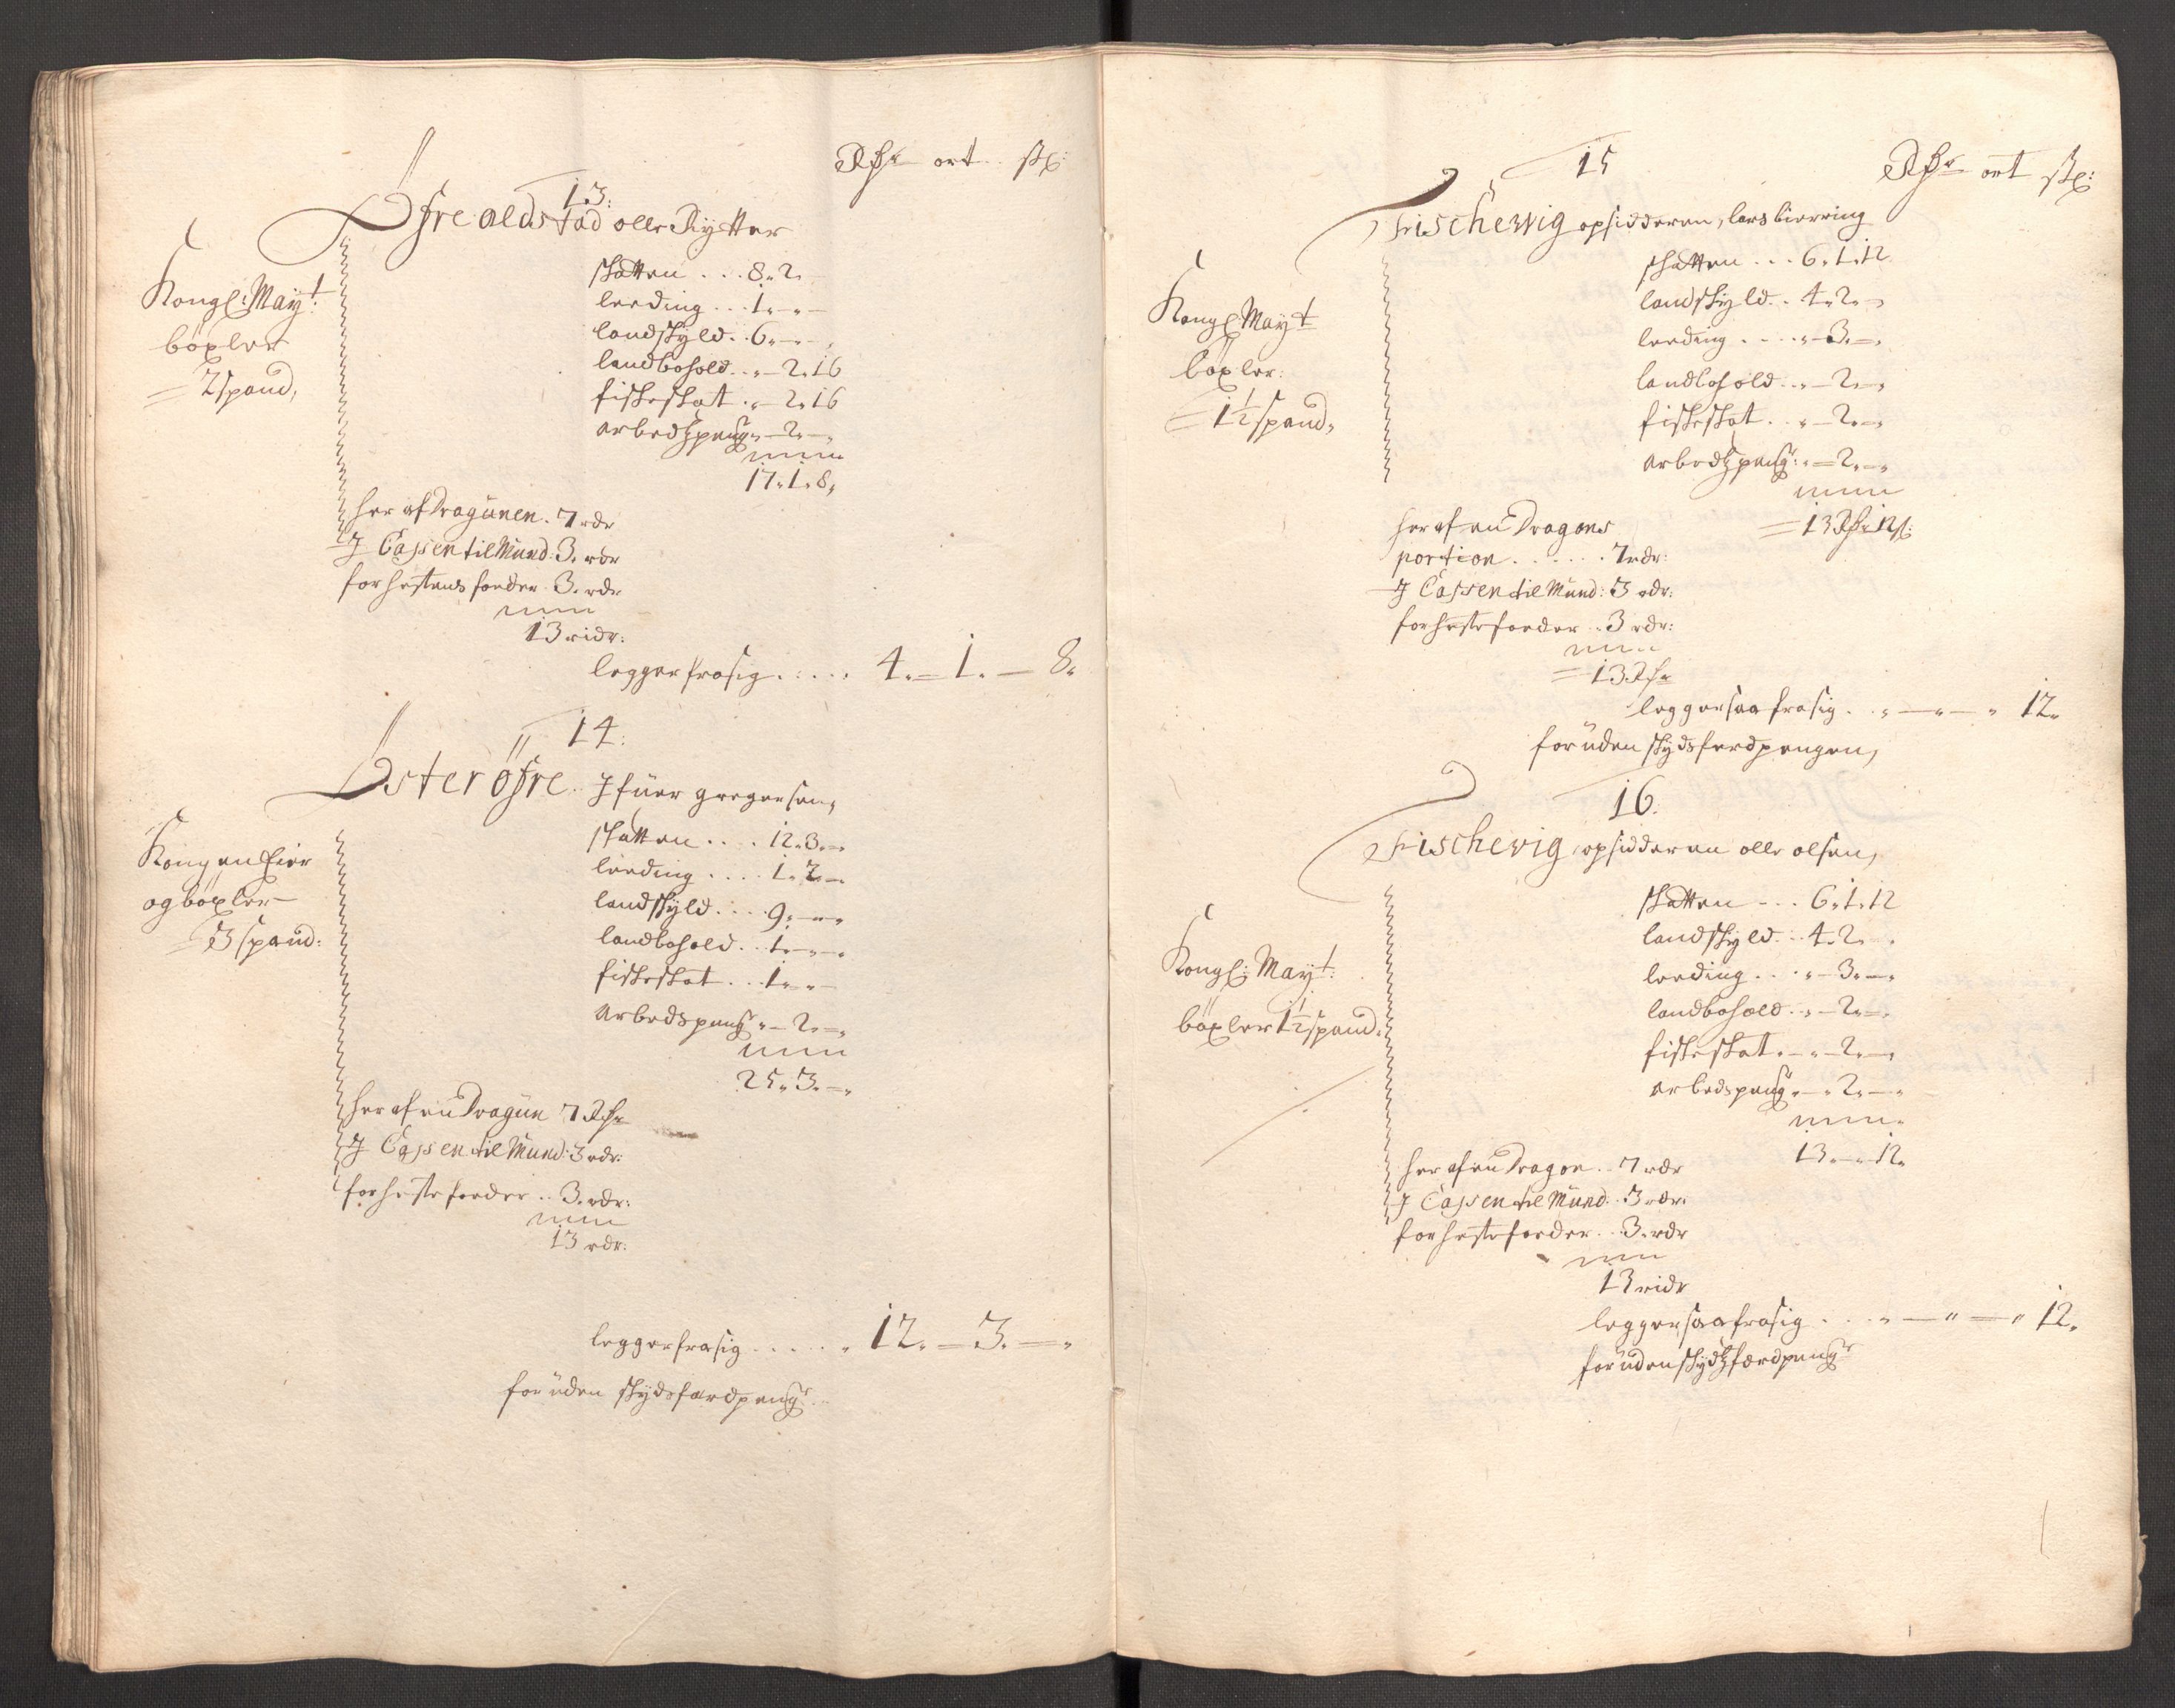 Rdr ort sk:
13:
Øfre aldstad olle Rytter
Kongl: Mayt:
böxler
2 spand,
skatten . . . 8. 2. -
leeding . . . 1. - -
landskyld . . 6. - -
landbohold . . - 2. 16
fiskeskat . - 2. 16
arbedtzpeng - 2. -
17. 1. 8.
her af Dragunen . 7 rdr
J Cassen til Mund: 3. rdr
for hestens foeder 3. rdr
13 ridr:
legger fra sig . . . . . 4. - 1. - 8.
14:
Øster øfre. Ifuer gregersen,
Kongen Eier
og böxler
3 spand:
skatten . . . . 12. 3. -
leeding . . . . 1. 2. -
landskyld . . . . 9. - -
landbohold . . . 1. - -
fiskeskat . . . 1. - -
arbedspeng - 2. -
25. 3. -
her af en Dragun 7 Rdr
J Cassen til Mund: 3 rdr:
for heste foeder . . 3. rdr:
13 rdr:
legger fra sig . . . . . 12. - 3. -
foruden skydsfærdpeng
Rdr ort sk:
15
Fischevig opsidderen, lars bierring
Kongl: Mayt
böxler:
1½ spand,
skatten . . . 6. 1. 12
landskyld . . 4. 2. -
leeding . . . . - 3. -
landbohold . . - 2. -
fiskeskat . . - 2. -
arbedtzpeng: - 2. -
13 Rdr 12 s:
her af en Dragons
portion . . . . . . 7 rdr:
J Cassen til Mund: 3 rdr:
for heste foeder . . 3 rdr:
13 Rdr
legger saa fra sig . . - - 12.
foruden skydsferdpengen,
16.
Fischevig opsidderen olle olsen,
Kongl: Mayt:
böxler 1½ spand.
skatten - . . 6. 1. 12
landskyld . . . 4. 2. -
leeding . . . - 3. -
landbohold . . - 2. -
fiskeskat . - - 2. -
arbedspeng - - 2. -
13. - 12.
her af en Dragon . . 7 rdr
J Cassen til Mund: . 3 rdr.
for heste foeder . . . 3. rdr
13 ridr
legger saa fra sig . . . - - 12.
foruden skydtzfærdpeng